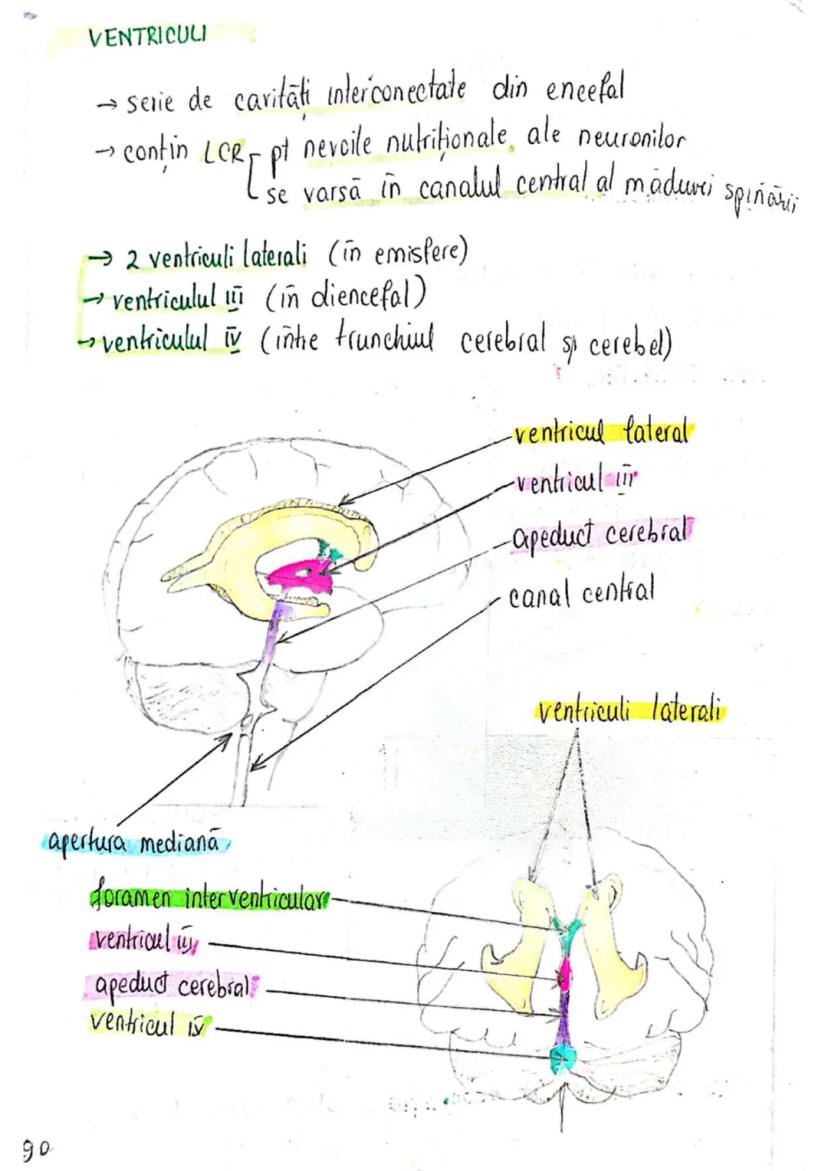 VENTRICULI
→ serie de cavități interconectate din encefal
→ conțin LCR pt nevoile nutriționale ale neuronilor
se varsă în canalul central al măduvei spinării
→ 2 ventriculi laterali (în emisfere)
→ ventriculul III (în diencefal)
→ ventriculul IV (între trunchiul cerebral și cerebel)
ventricul lateral
ventricul III
apeduct cerebral
canal central
ventriculi laterali
apertura mediană
foramen interventricular
ventricul III
apeduct cerebral
ventricul IV
90